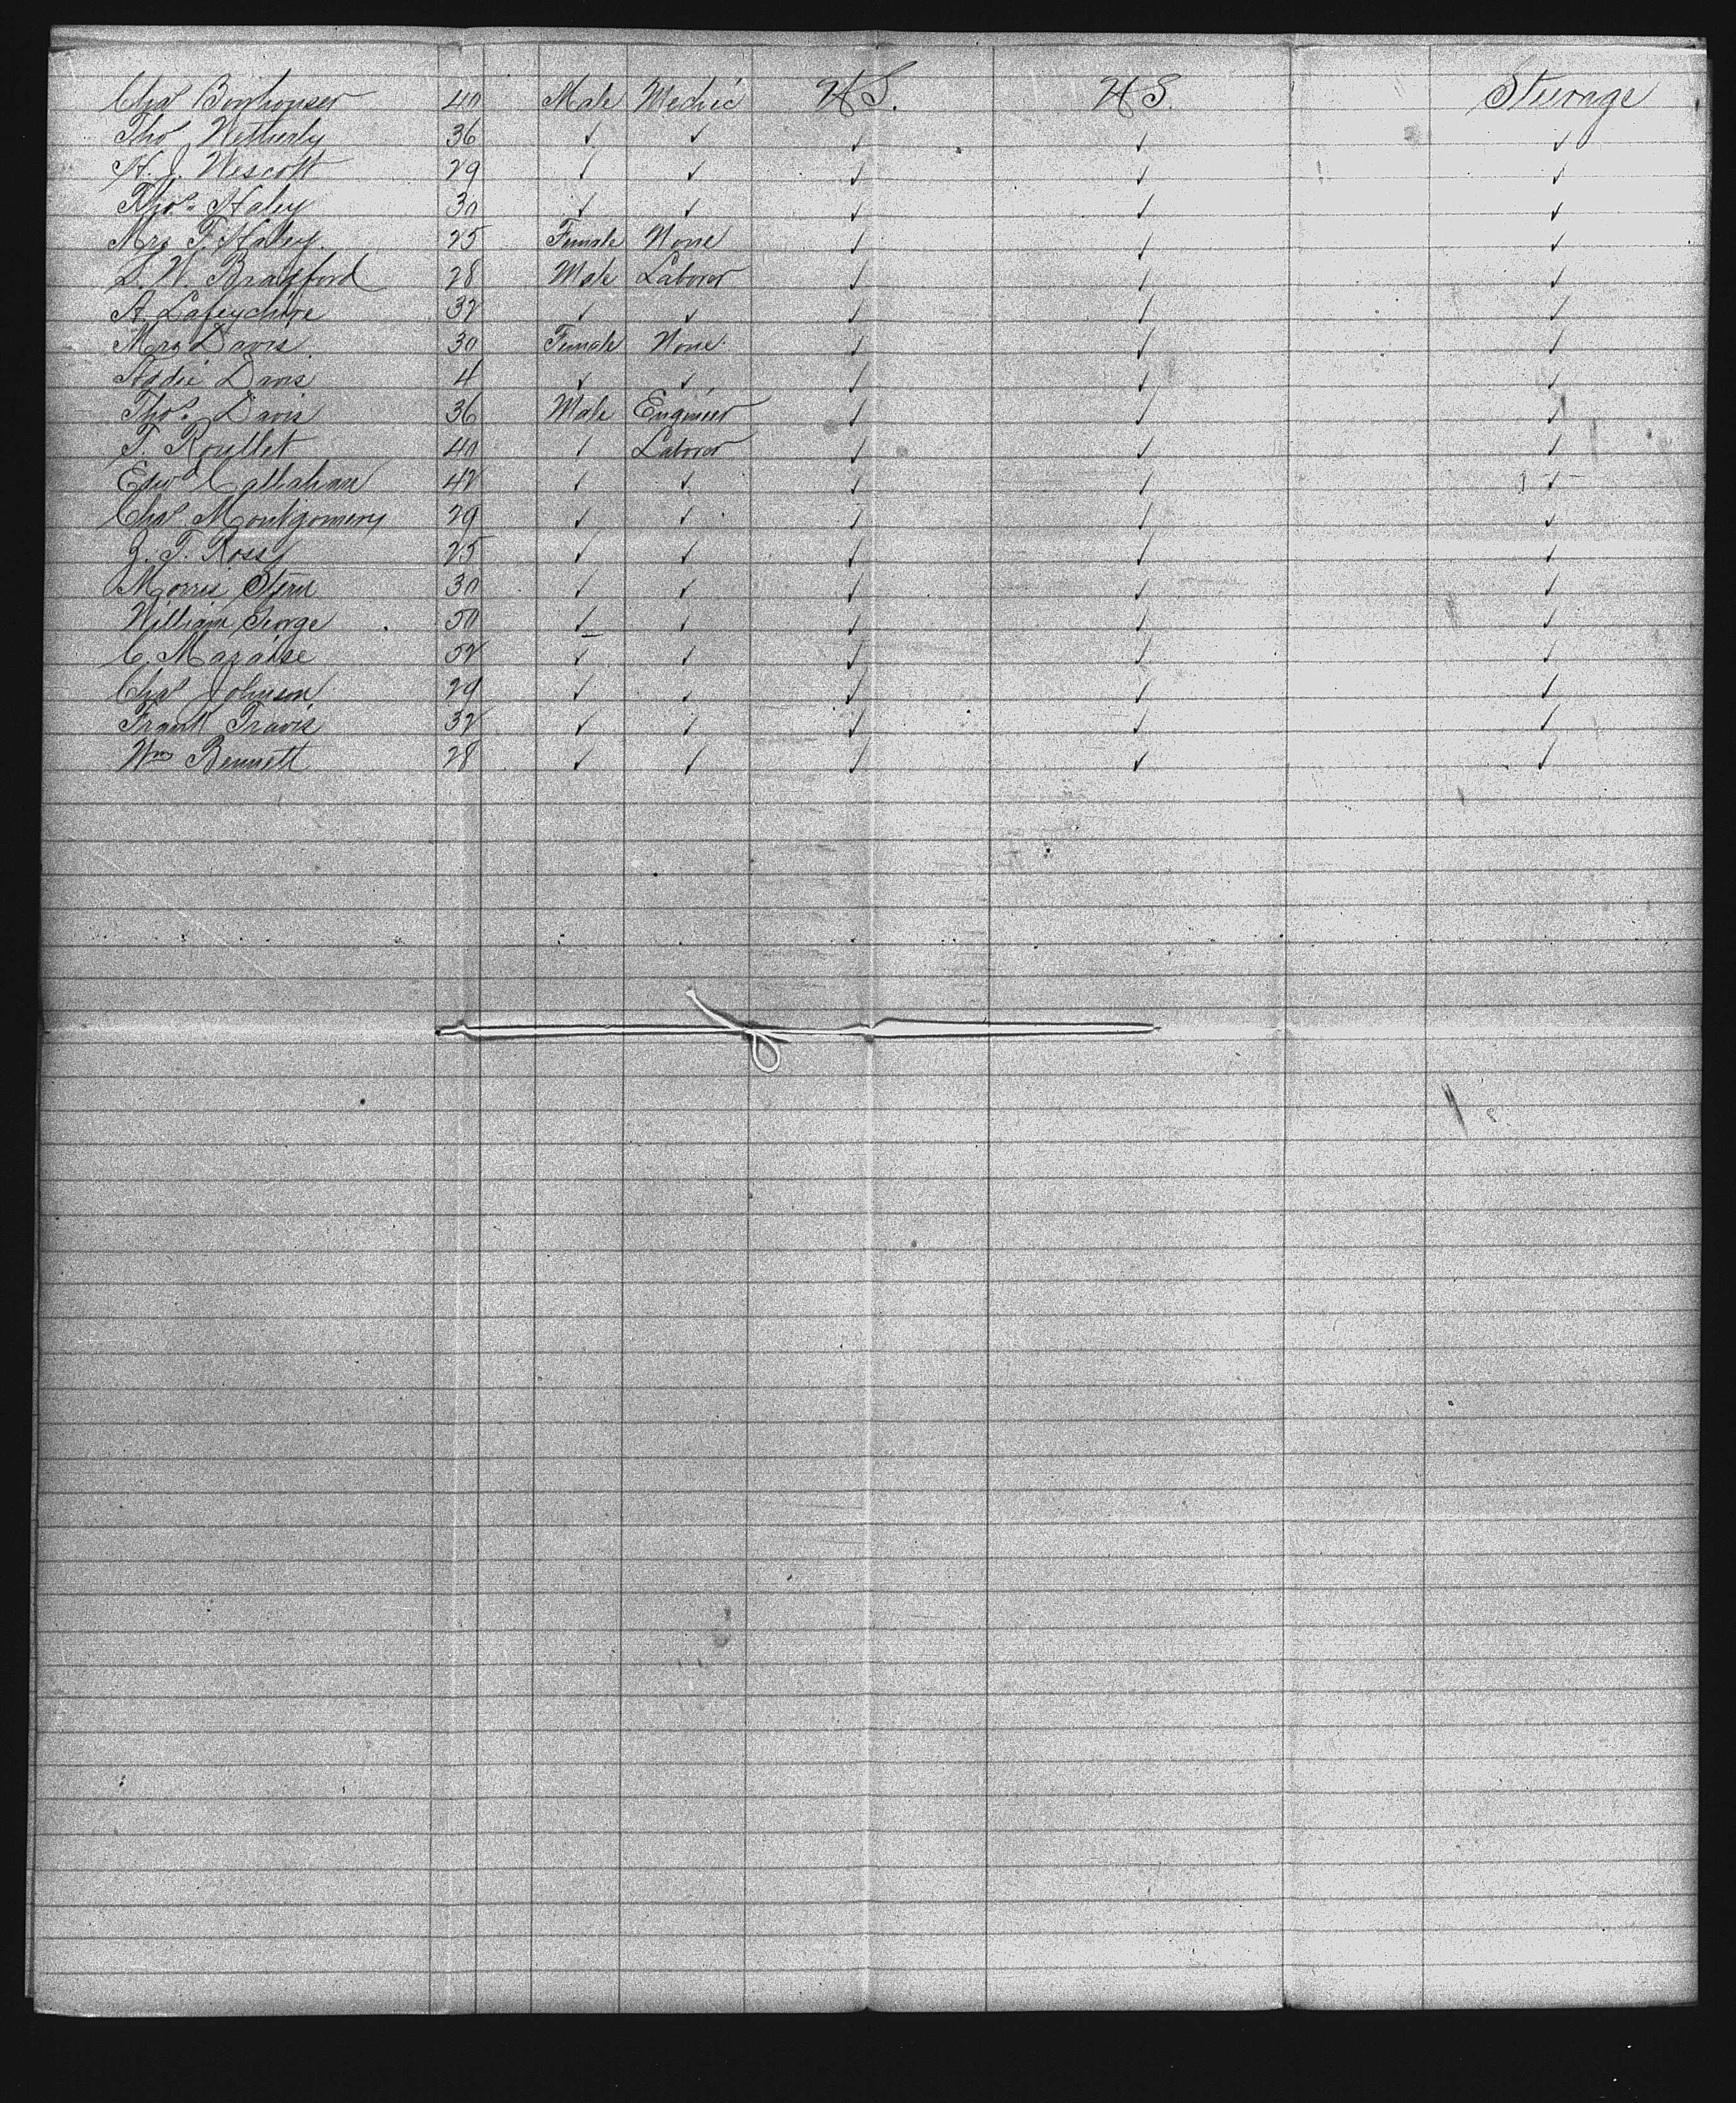 Chas Bowhouser 40 Male Mechic U S. U S. Steerage
Thos Wetherly 36 ✓ ✓ ✓ ✓ ✓
H. J. Wescott 29 ✓ ✓ ✓ ✓ ✓
Thos. Haley 30 ✓ ✓ ✓ ✓ ✓
Mrs T. Haley. 25 Female None ✓ ✓ ✓
28 Male Laborer ✓ ✓ ✓
A. 32 ✓ ✓ ✓ ✓ ✓
Mrs Davis 30 Female None ✓ ✓ ✓
Addie Davis 4 ✓ ✓ ✓ ✓ ✓
Thos. Davis 36 Male Engineer ✓ ✓ ✓
T. Roullet 40 ✓ Laborer ✓ ✓ ✓
Edwd Callahan 42 ✓ ✓ ✓ ✓ ✓
Chas Montgomery 29 ✓ ✓ ✓ ✓ ✓
T. Ross 25 ✓ ✓ ✓ ✓ ✓
Morris Stern 30 ✓ ✓ ✓ ✓ ✓
William George 50 ✓ ✓ ✓ ✓ ✓
C. 52 ✓ ✓ ✓ ✓ ✓
Chas Johnson 29 ✓ ✓ ✓ ✓ ✓
Frank Travis 32 ✓ ✓ ✓ ✓ ✓
Wm Bennett 28 ✓ ✓ ✓ ✓ ✓